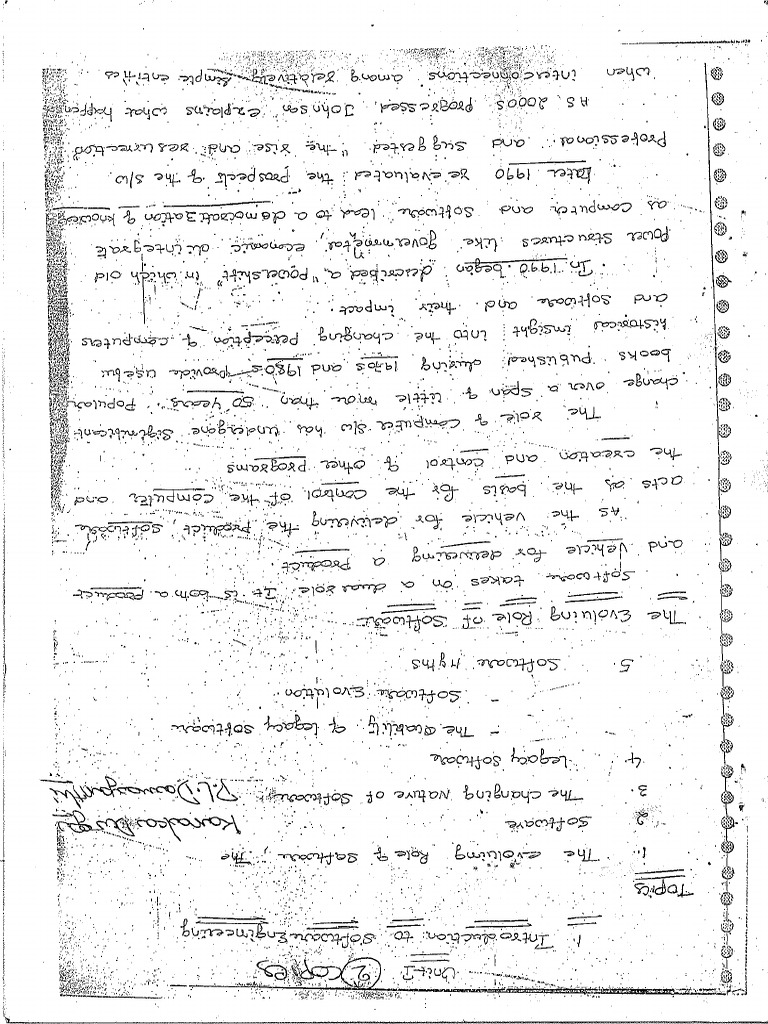 Unit-I
2 copies
1. Introduction to Software Engineering
Topics
1. The evoluing Role of software, The
2. Software
Kanaka Durga
3. The changing Nature of software.
4. Legacy software
- The Quability of legacy software
- Software Evolution
5. Software Myths
The Evoluing Role of Software
Software takes on a dual role. It is both a product
and vehicle for delivering a product.
As the vehicle for delivering the product, software
acts as the basis for the control of the computer and
the creation and control of other programs
The role of computer s/w has undergone significant
change over a span of little more than 50 years. Popular
books published during 1970s and 1980s provide useful
historical insight into the changing perception of computers
and software and their impact.
In 1990 began described a "powershift" in which old
power structures like governmental, economic diintegrate
as computer and software lead to a democratization of knowledge
Later 1990 re-evaluated the prospects of the s/w
Professional and suggested "the rise and resurrection
As 2000s progressed Johnson explains what happen
when interconnections among relatively simple entities